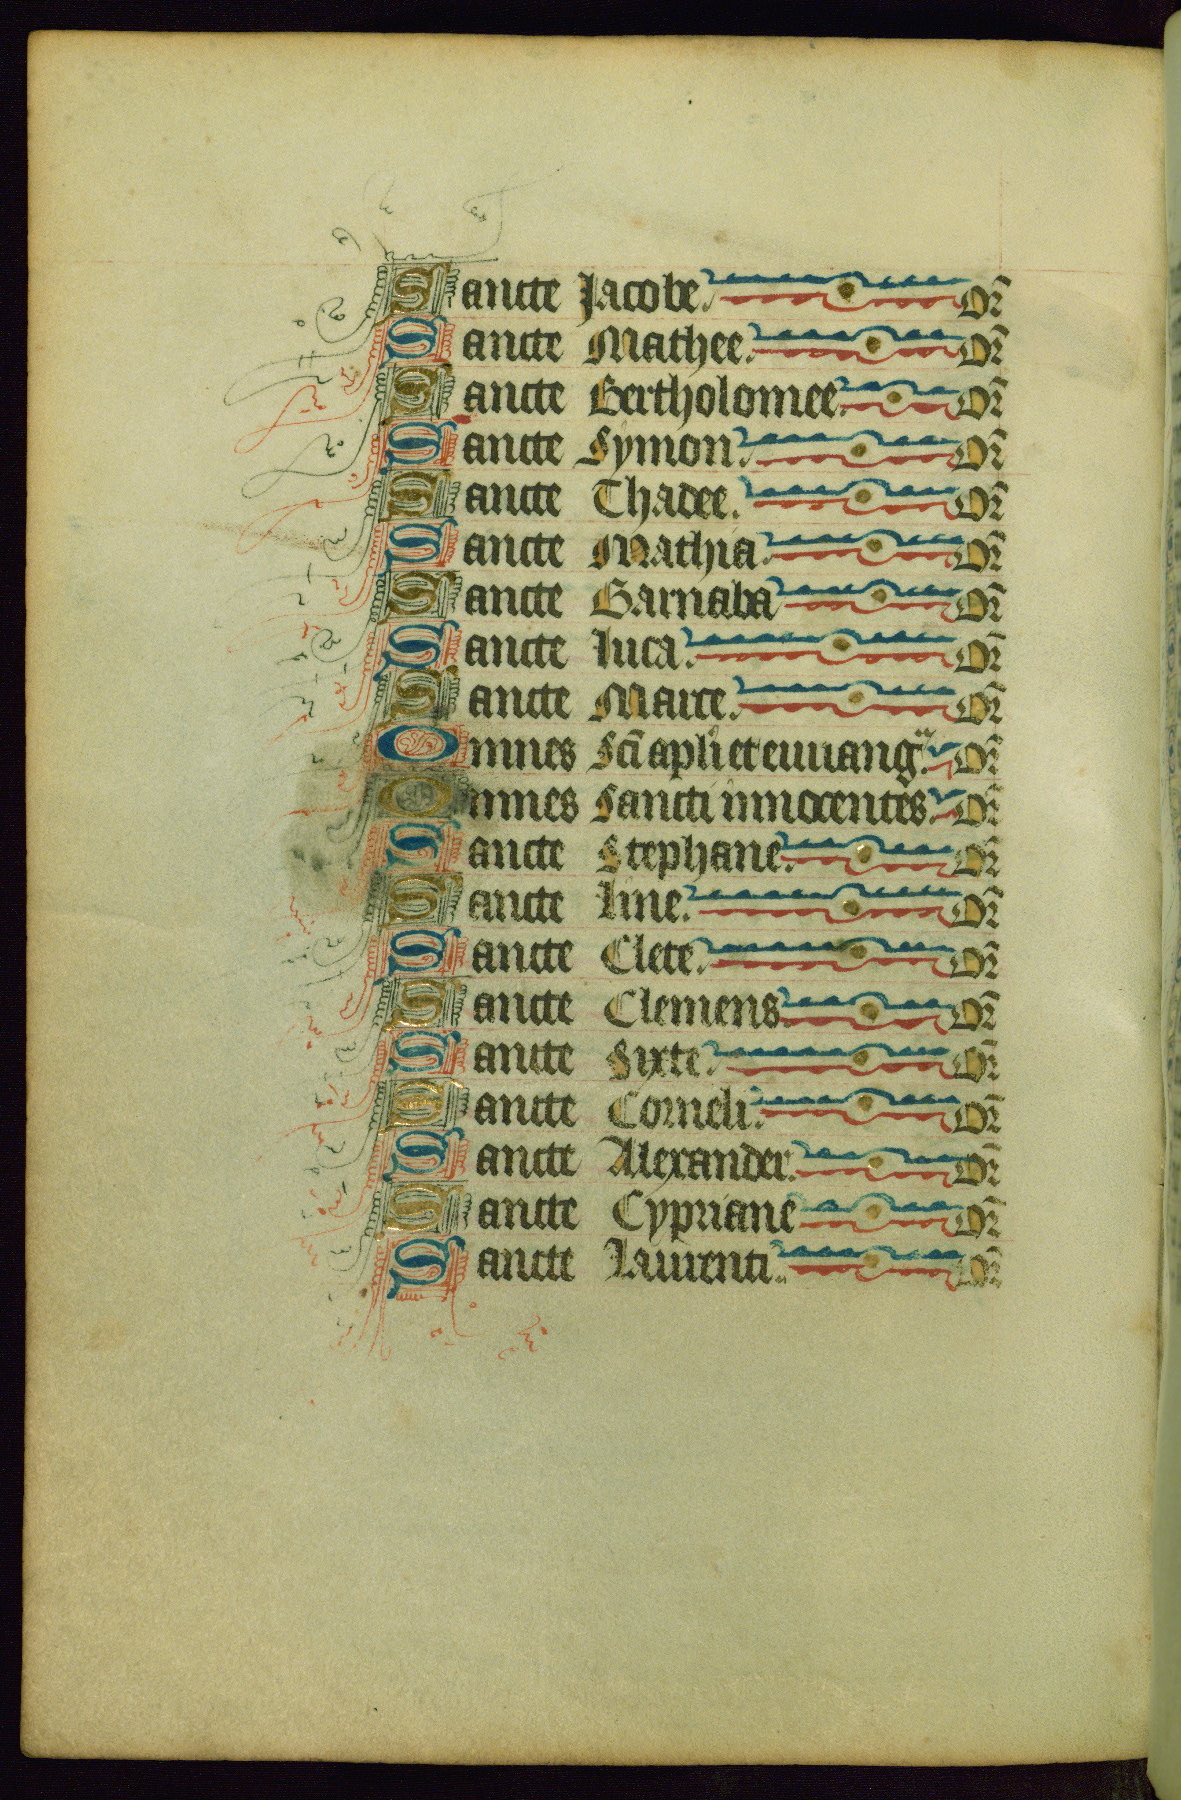 Sancte Jacobe. Or̄
Sancte Mathee. Or̄
Sancte Bertholomee. Or̄
Sancte Symon. Or̄
Sancte Thadee. Or̄
Sancte Mathia. Or̄
Sancte Barnaba Or̄
Sancte luca. Or̄
Sancte Marce. Or̄
Omnes Sc̄i apl̄i et euuang. Or̄
Omnes Sancti innocentes. Or̄
Sancte Stephane. Or̄
Sancte line. Or̄
Sancte Clete. Or̄
Sancte Clemens Or̄
Sancte Sixte. Or̄
Sancte Corneli. Or̄
Sancte Alexander. Or̄
Sancte Cypriane Or̄
Sancte Laurenti. Or̄